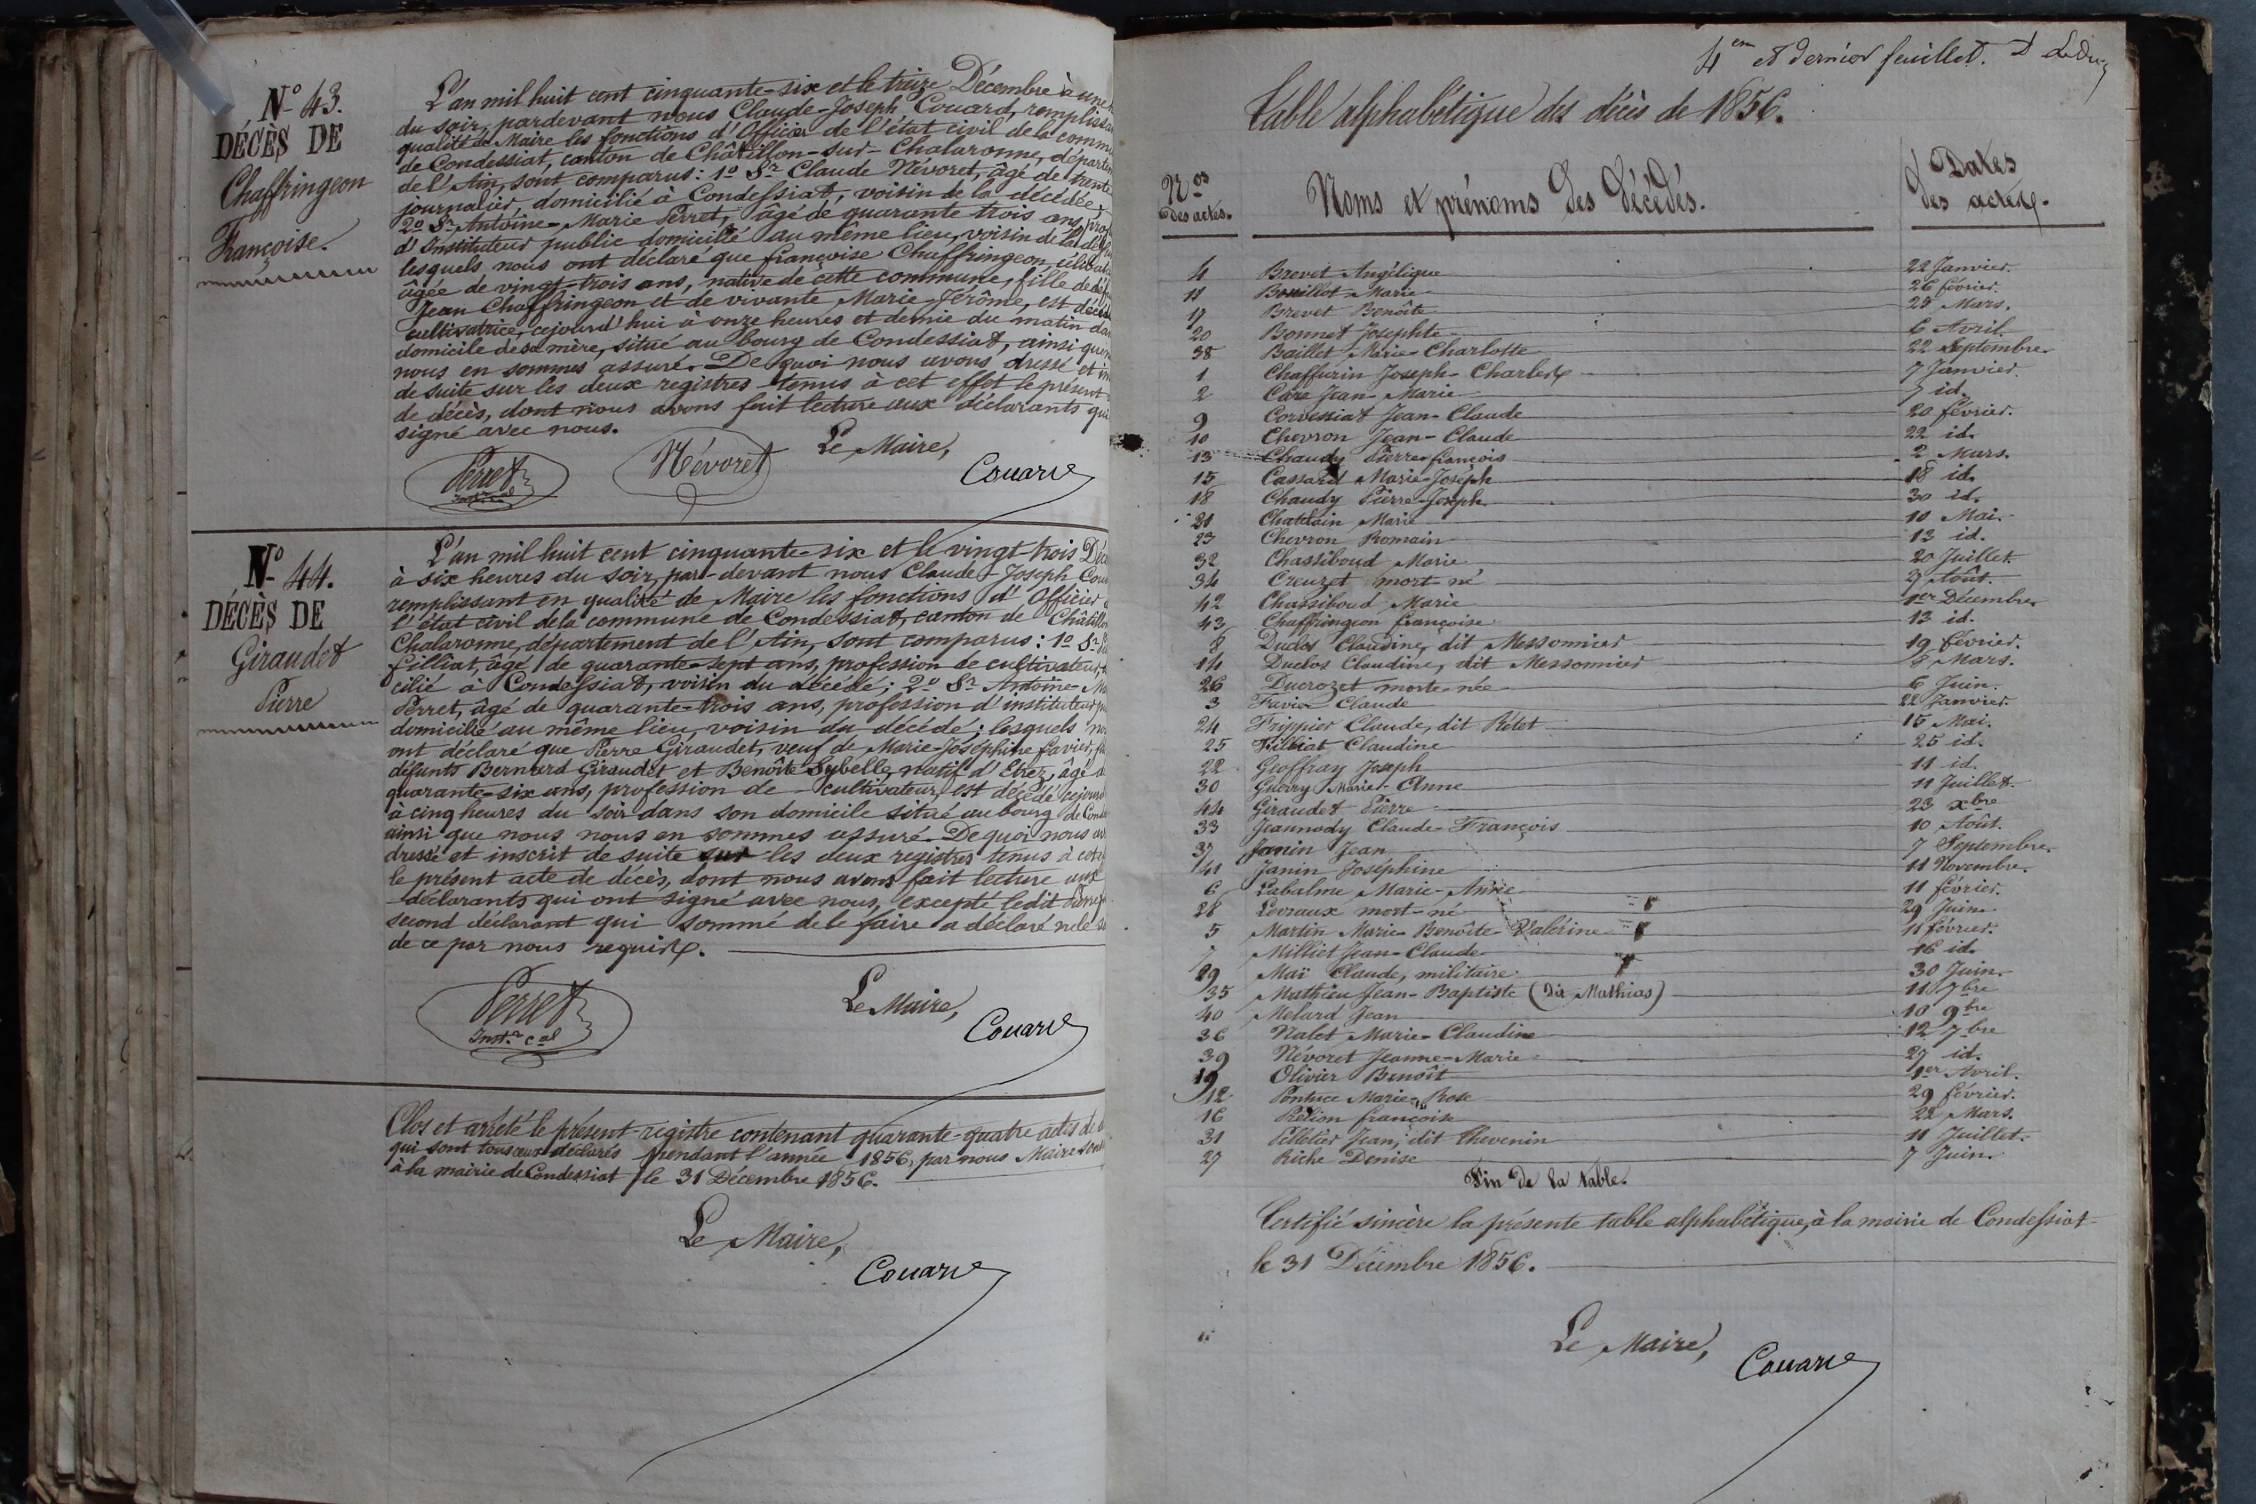 N° 43.
DÉCÈS DE
Chaffringeon
Françoise.
L'an mil huit cent cinquante-six et le treize Décembre à une
du soir, pardevant nous Claude-Joseph Couard, remplissa
qualité de Maire les fonctions d'Officier de l'état civil de la comm
de Condessiat, canton de Châtillon-sur-Chalaronne, départem
de l'Ain, sont comparus: 1° Sr Claude Névoret, âgé de trente
journalier, domicilié à Condessiat, voisin de la décédée,
2° Sr Antoine-Marie Perret, âgé de quarante trois ans, prof
d'Instituteur public domicilié au même lieu, voisin de la
lesquels nous ont déclaré que françoise Chaffringeon, céliba
âgée de vingt-trois ans, native de cette commune, fille de dé
Jean Chaffringeon et de vivante Marie Jérôme, est décé
cultivatrice, cejourd'hui à onze heures et demie du matin da
domicile de sa mère, situé au bourg de Condessiat, ainsi que
nous en sommes assuré. De quoi nous avons dressé et in
de suite sur les deux registres tenus à cet effet le présent
de décès, dont nous avons fait lecture aux déclarants qui
signé avec nous.
Le Maire,
Perret
Névoret
Couard
N° 44.
DÉCÈS DE
Giraudet
Pierre
L'an mil huit cent cinquante-six et le vingt-trois Déc
à six heures du soir, par-devant nous Claude-Joseph Cou
remplissant en qualité de Maire les fonctions d'Officier
l'état civil de la commune de Condessiat, canton de Châtillon
Chalaronne, département de l'Ain, sont comparus: 1° Sr
filliat, âgé de quarante-sept ans, profession de cultivateur,
cilié à Condessiat, voisin du décédé; 2° Sr Antoine-Ma
Perret, âgé de quarante-trois ans, profession d'instituteur
domicilié au même lieu, voisin du décédé; lesquels
ont déclaré que Pierre Giraudet, veuf de Marie-Joséphine favier,
défunts Bernard Giraudet et Benoîte Sybelle, natif d'Etrez, âgé
quarante-six ans, profession de cultivateur, est décédé cejour
à cinq heures du soir dans son domicile situé au bourg de Cond
ainsi que nous nous en sommes assuré. De quoi nous
dressé et inscrit de suite sur les deux registres tenus à cet
le présent acte de décès, dont nous avons fait lecture aux
déclarants qui ont signé avec nous, excepté ledit
second déclarant qui sommé de le faire a déclaré ne le
de ce par nous requis.
Perret
Instr cal
Le Maire,
Couard
Clos et arrêté le présent registre contenant quarante-quatre actes de
qui sont tous ceux déclarés pendant l'année 1856, par nous Maire
à la mairie de Condessiat le 31 Décembre 1856.
Le Maire,
Couard
4em et dernier feuillet.
Table alphabétique des décès de 1856.
Nos des actes. Noms et prénoms des décédés. Dates des actes.
4 Brevet Angélique 22 Janvier.
11 Bouillot Marie 26 février.
17 Brevet Benoîte 28 Mars.
20 Bonnet Josephte 6 Avril
38 Baillet Marie-Charlotte 22 Septembre.
1 Chaffurin Joseph-Charles 7 Janvier.
2 Care Jean-Marie 7 id.
9 Corvessiat Jean-Claude 20 février.
10 Chevron Jean-Claude 22 id.
13 Chaudy Pierre françois 2 Mars.
15 Cassard Marie-Joseph 18 id.
18 Chaudy Pierre-Joseph 30 id.
21 Chatelain Marie 10 Mai.
23 Chevron Romain 13 id.
32 Chassiboud Marie 20 Juillet.
34 Creuzet mort né 9 Août.
42 Chassiboud Marie 1er Décembre.
43 Chaffringeon françoise 13 id.
8 Duclos Claudine, dit Messonnier 19 février.
14 Duclos Claudine, dit Messonnier 8 Mars.
26 Ducrozet morte-née 6 Juin.
3 Favier Claude 22 Janvier.
24 Frippier Claude, dit Rétet 15 Mai.
25 Filliat Claudine 25 id.
22 Geoffray Joseph 11 id.
30 Guerry Marie-Anne 11 Juillet.
44 Giraudet Pierre 23 xbre
33 Jeannody Claude-François 10 Août.
37 Janin Jean 7 Septembre.
41 Janin Joséphine 11 Novembre.
6 Labalme Marie-Anne 11 février.
28 Levraux mort-né 29 Juin.
5 Martin Marie Benoîte-Valérine 11 février.
7 Milliet Jean-Claude 16 id.
29 Maï Claude, militaire 30 Juin.
35 Mathieu Jean-Baptiste (dit Mathias) 11 7bre
40 Melard Jean 10 9bre
36 Nalet Marie-Claudine 12 7bre
39 Névoret Jeanne-Marie 27 id.
19 Olivier Benoît 1er Avril.
12 Ponthuce Marie-Rose 29 février.
16 françoise 22 Mars.
31 Pelletier Jean, dit Thevenin 11 Juillet.
27 Riche Denise 7 Juin.
Fin de la table.
Certifié sincère la présente table alphabétique, à la mairie de Condessiat
le 31 Décembre 1856.
Le Maire,
Couard